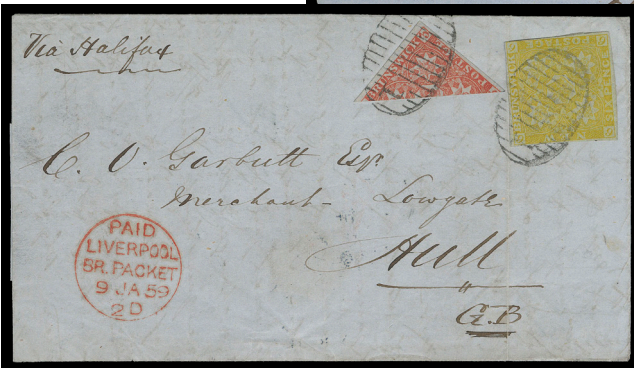 Via Halifax
C. O. Garbutt Esqr
Merchant - Lowgate
Hull
G.B
PAID
LIVERPOOL
BR. PACKET
9 JA 59
2D